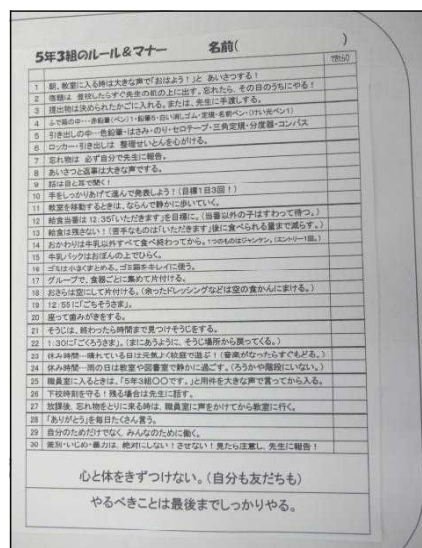 5年3組のルール&マナー 名前( )
1 朝、教室に入る時は大きな声で「おはよう！」と あいさつする！
2 宿題は 登校したらすぐ先生の机の上に出す。忘れたら、その日のうちにやる！
3 提出物は決められたかごに入れる。または、先生に手渡しする。
4 ふで箱の中…赤鉛筆(ペン)1・鉛筆5・白い消しゴム・定規・名前ペン・(けい光ペン1)
5 引き出しの中…色鉛筆・はさみ・のり・セロテープ・三角定規・分度器・コンパス
6 ロッカー・引き出しは 整理せいとんを心がける。
7 忘れ物は 必ず自分で先生に報告。
8 あいさつと返事は大きな声でする。
9 話は目と耳で聞く！
10 手をしっかりあげて進んで発表しよう！(目標1日3回！)
11 教室を移動するときは、ならんで静かに歩いていく。
12 給食当番は 12:35「いただきます」を目標に。(当番以外の子はすわって待つ。)
13 給食は残さない！(苦手なものは「いただきます」後に食べられる量まで減らす。)
14 おかわりは牛乳以外すべて食べ終わってから。1つのものはジャンケン。(エントリー1回。)
15 牛乳パックはおぼんの上でひらく。
16 ゴミは小さくまとめる。ゴミ箱をキレイに使う。
17 グループで、食器ごとに集めて片付ける。
18 おさらは空にして片付ける。(余ったドレッシングなどは空の食かんにまける。)
19 12:55に「ごちそうさま」。
20 座って歯みがきをする。
21 そうじは、終わったら時間まで見つけそうじをする。
22 1:30に「ごくろうさま」。(まにあうように、そうじ場所から戻ってくる。)
23 休み時間…晴れている日は元気よく校庭で遊ぶ！(音楽がなったらすぐもどる。)
24 休み時間…雨の日は教室や図書室で静かに過す。(ろうかや階段にいない。)
25 職員室に入るときは、「5年3組○○です。」と用件を大きな声で言ってから入る。
26 下校時刻を守る！残る場合は先生に話す。
27 放課後、忘れ物をとりに来る時は、職員室に声をかけてから教室に行く。
28 「ありがとう」を毎日たくさん言う。
29 自分のためだけでなく、みんなのために働く。
30 差別・いじめ・暴力は、絶対にしない！させない！見たら注意し、先生に報告！
心と体をきずつけない。(自分も友だちも)
やるべきことは最後までしっかりやる。